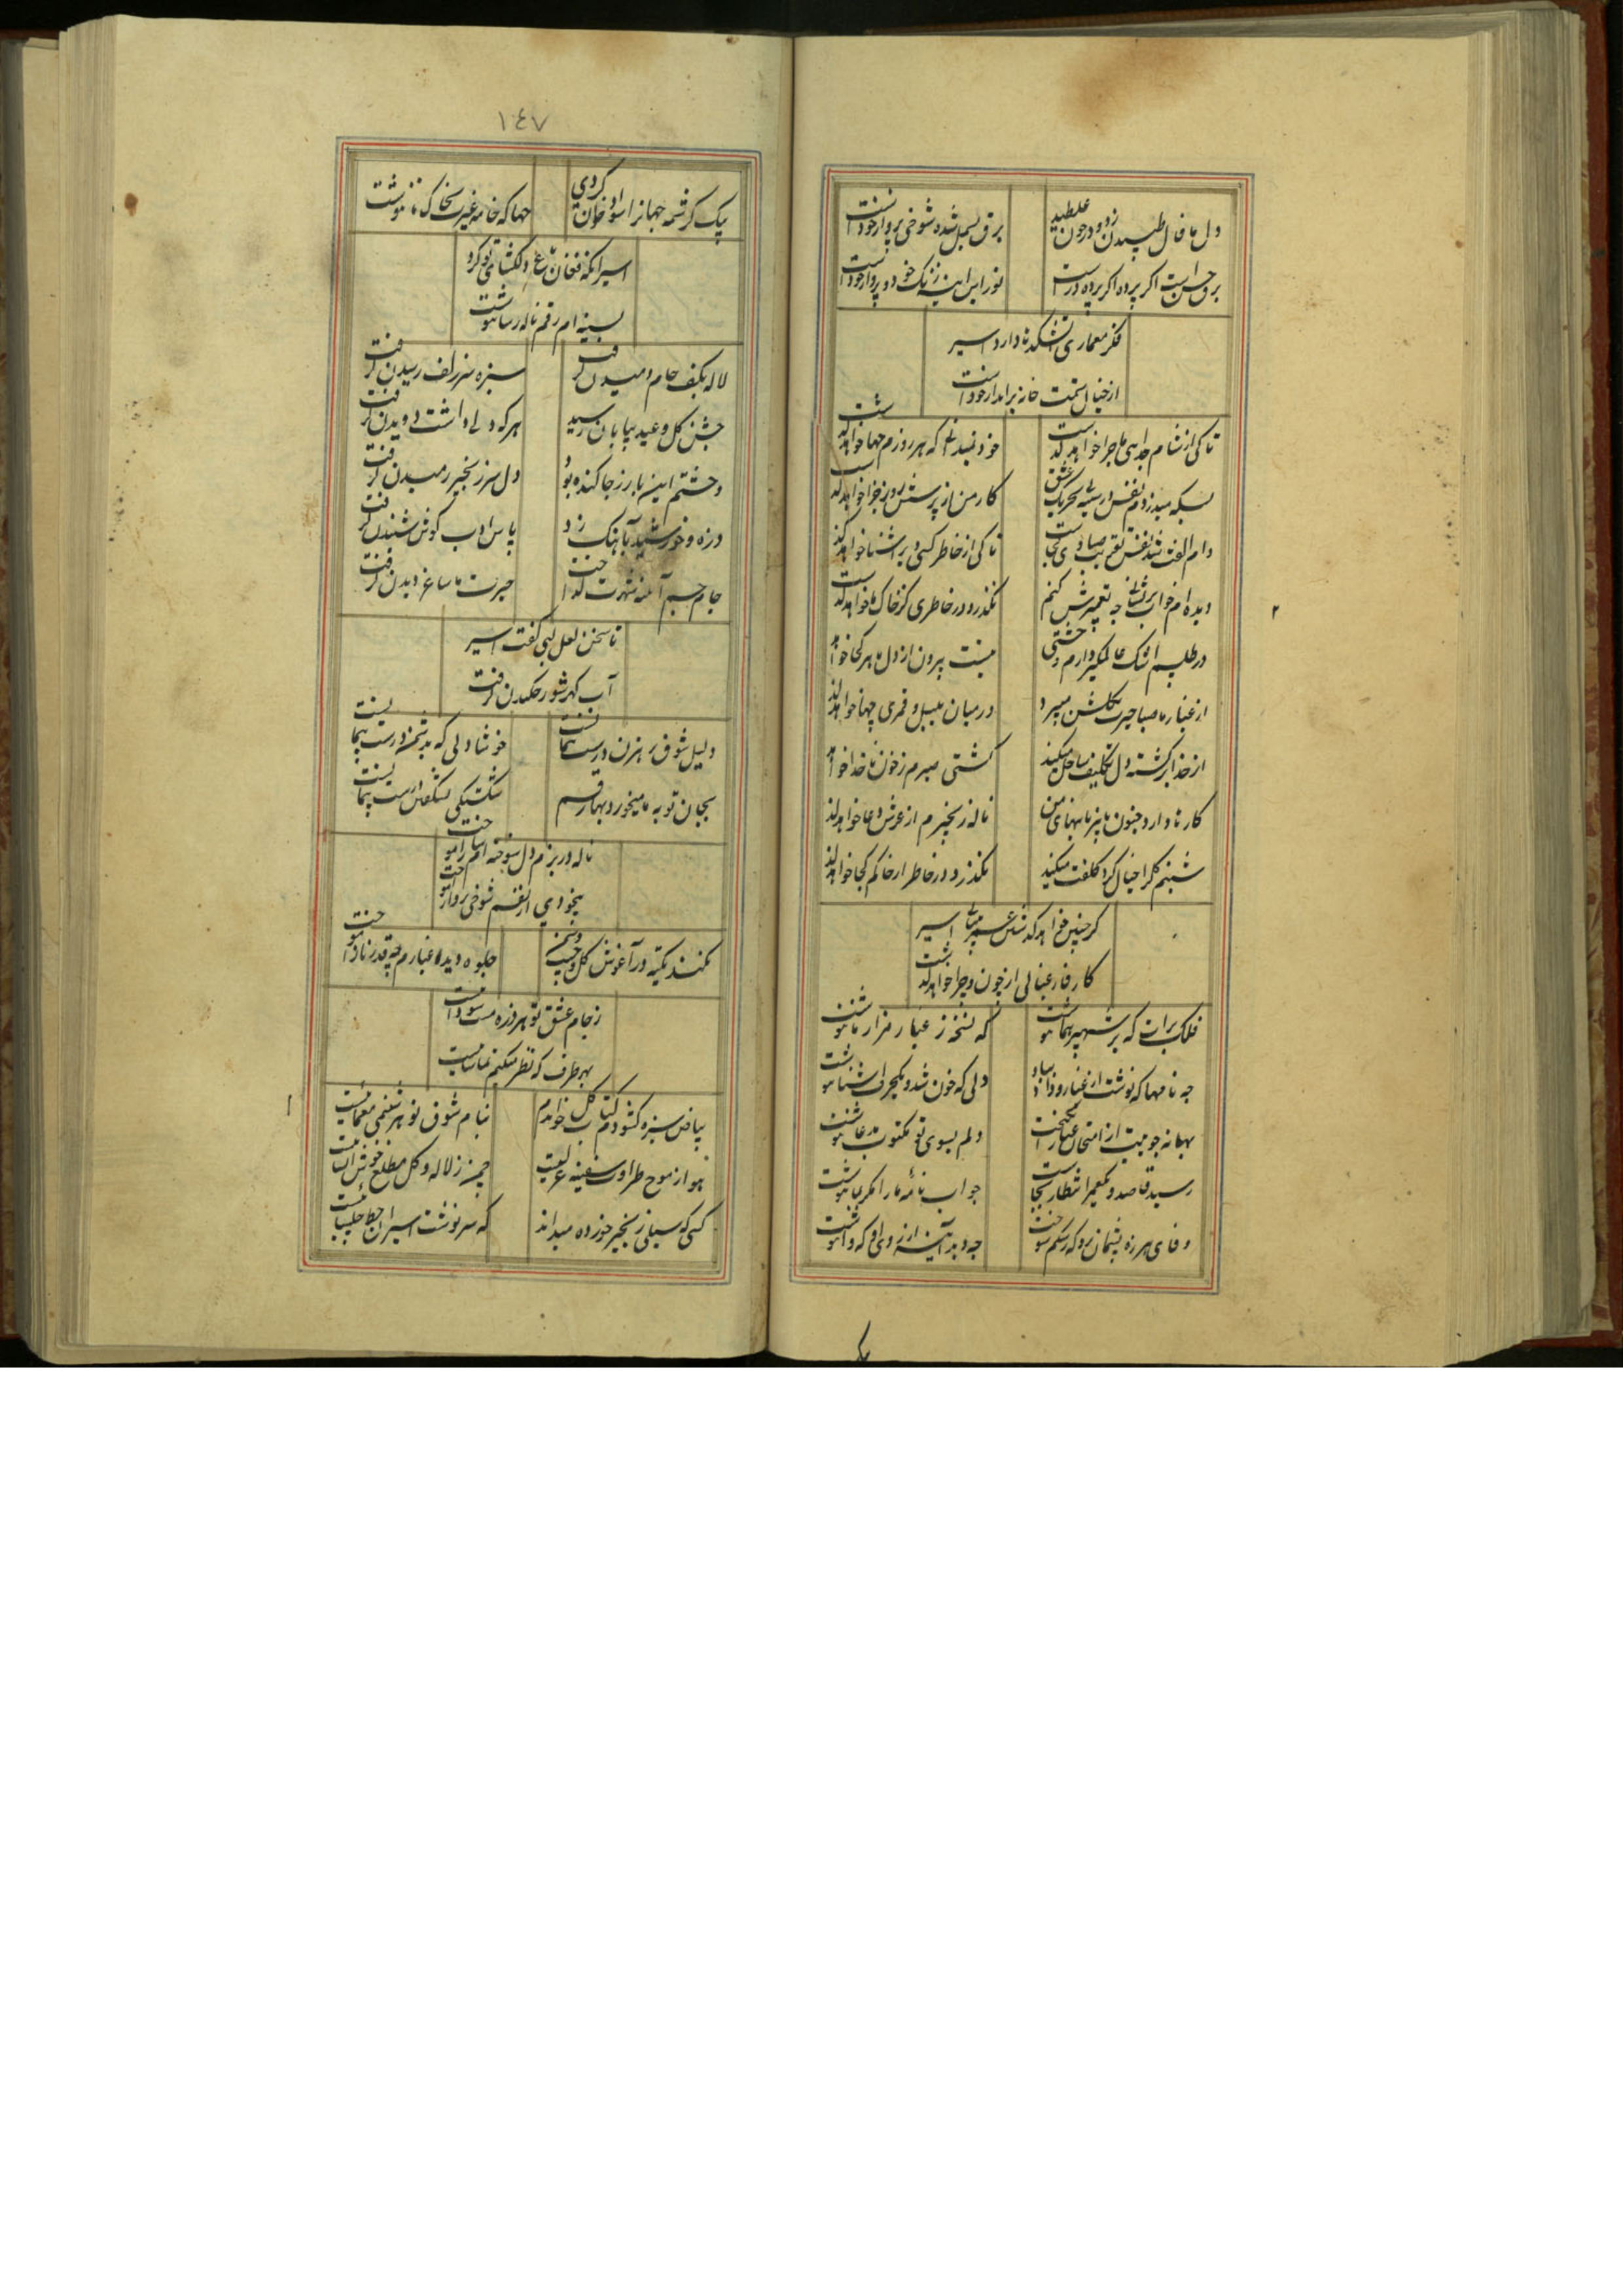 دل ما فال طپیدن زد و در خون غلطید
برق بسمل شده شوخی پرواز خود است
برق حسن است اگر پرده اگر پرده در است
نور این آینه زنگ خود و پرداز خود است
فکر معماری آتشکده‌ها دارد اسیر
از خیال ستمت خانه برانداز خود است
تا کی از شام جدایی ماجرا خواهد گذشت
خود نمیدانم که هر روزم چها خواهد گذشت
بسکه میدزدم نفس در سینه بی تحریک عشق
کار من از پرسش روز جزا خواهد گذشت
دام الفت شد نفس تقریب صیادی کجاست
تا کی از خاطر کسی دیر آشنا خواهد گذشت
دیده‌ام خواب پریشانی چه تعبیرش کنم
نگذرد در خاطری کز خاک ما خواهد گذشت
در طلسم اشک عالمگیر دارم وحشتی
نیست بیرون از دل ما هر کجا خواهد
از غبار ما صبا حیرت بگلشن میبرد
در میان بلبل و قمری چها خواهد گذشت
از خدا برگشته دل تکلیف ساحل میکند
کشتی صبرم ز خون ناخدا خواهد
کارها دارد جنون با پیرهنهای من
ناله زنجیرم از عرش دعا خواهد گذشت
شبنم گل را خیال گرد کلفت میکند
نگذرد در خاطر از خاکم کجا خواهد گذشت
گر چنین خواهد گذشتن عمر بیتابی اسیر
کار فارغبالی از چون و چرا خواهد گذشت
فلک برات که بر شهپر هما نوشت
که نسخه ز غبار مزار ما نوشت
چه نامها که نوشت از غبار و داد بباد
دلی که خون شد و یکحرف آشنا نوشت
بهانه جوییت از امتحان غبار انگیخت
دلم بسوی تو مکتوب مدعا نوشت
رسید قاصد و یکعمر انتظار بجاست
جواب نامه ما را مگر بما نوشت
وفای هرزه پشیمان نرو که رشکم سوخت
چه دید آینه از روی او که وا نوشت
یک
١٤٧
یک کرشمه جهانرا سواد خوان کردی
چها که خامه غیرت بخاک ما ننوشت
اسیر آنکه فغان باغ دلگشای تو کرد
بسینه‌ام رقم ناله رسا ننوشت
لاله بکف جام دمیدن گرفت
سبزه سر زلف رسیدن گرفت
جشن گل و عید بیابان رسید
هر که دلی داشت دویدن گرفت
وحشتم این بار ز جا کنده بود
دل سر زنجیر رمیدن گرفت
ذره و خورشید بآهنگ زد
پاس ادب گوش شنیدن گرفت
جام جم آینه شهرت گداخت
حیرت ما ساغر دیدن گرفت
تا سخن لعل لبی گفت اسیر
آب گهر شور چکیدن گرفت
دلیل شوق رهزن درست پیمانیست
خوشا دلی که بدشمن درست پیمانیست
بجان توبه ما میخورد بهار قسم
شکستگی بشکستن درست پیمانیست
ناله در بزم دل سوخته‌ام ساز آموخت
بیخودی از نفسم شوخی پرواز آموخت
نکند تکیه در آغوش گل و جیب چمن
جلوه دیده غبارم چقدر ناز آموخت
ز جام عشق تو هر ذره مست سوداییست
بهر طرف که نظر میکنم تماشاییست
بیاض سبزه گشودم کتاب گل خواندم
بنام شوق تو هر شبنمی معماییست
هوا ز موج طراوت سفینه غزلیست
چمن ز لاله و گل مطلع خوش انشاییست
کسی که سیلی زنجیر خورده میداند
که سرنوشت اسیران خط چلیپاییست